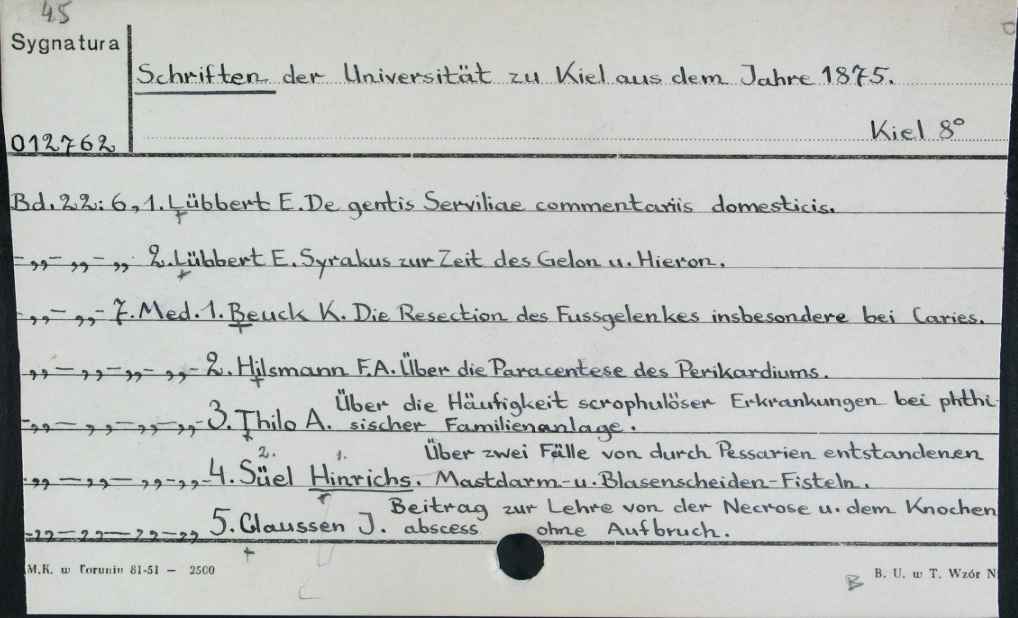 45
Sygnatura
Schriften der Universität zu Kiel aus dem Jahre 1875.
Kiel 8°
012762
Bd. 22: 6, 1. Lübbert E. De gentis Serviliae commentariis domesticis.
-„-„-„ 2. Lübbert E. Syrakus zur Zeit des Gelon u. Hieron.
-„-„- 7. Med. 1. Beuck K. Die Resection des Fussgelenkes insbesondere bei Caries.
-„-„-„-„- 2. Hilsmann F.A. Über die Paracentese des Perikardiums.
-„-„-„-„- 3. Thilo A. Über die Häufigkeit scrophulöser Erkrankungen bei phthi-
sischer Familienanlage.
2. 1.
-„-„-„-„- 4. Süel Hinrichs. Über zwei Fälle von durch Pessarien entstandenen
Mastdarm- u. Blasenscheiden-Fisteln.
-„-„-„-„ 5. Claussen J. Beitrag zur Lehre von der Necrose u. dem Knochen
abscess ohne Aufbruch.
M.K. w Toruniu 81-51 — 2500
B B. U. w T. Wzór N